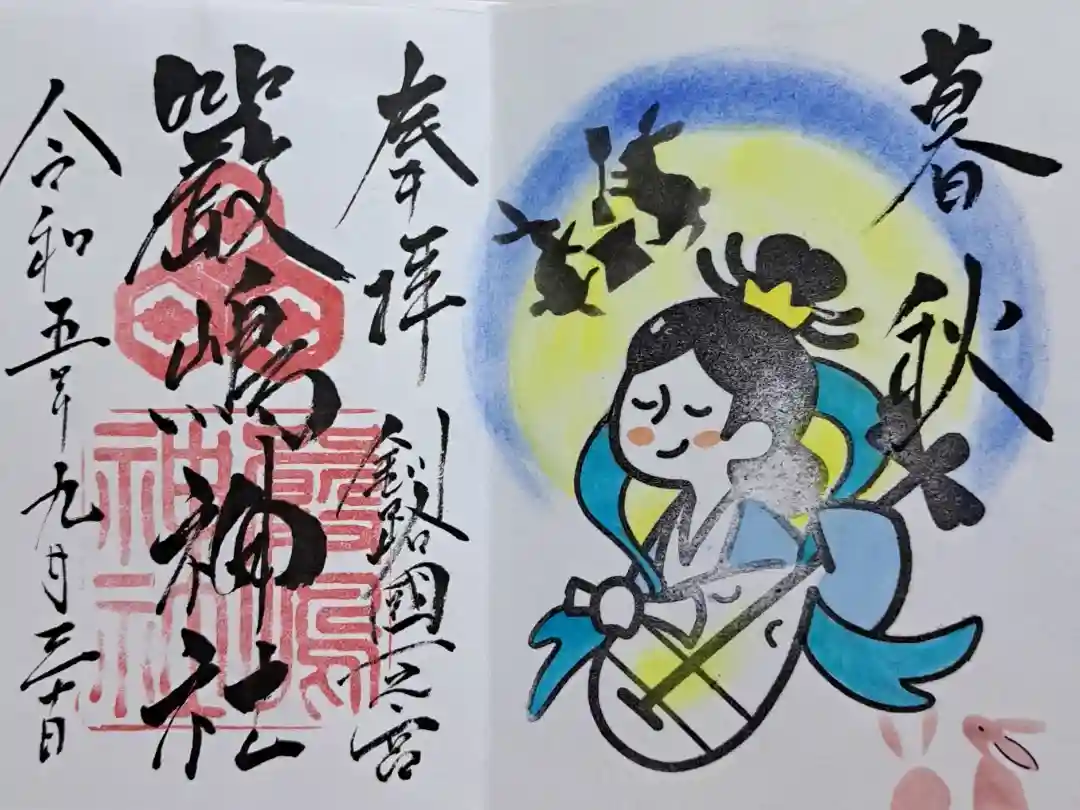 暮秋
奉拝
釧路國一之宮
嚴嶋神社
令和五年九月三十日
嚴嶋
神社